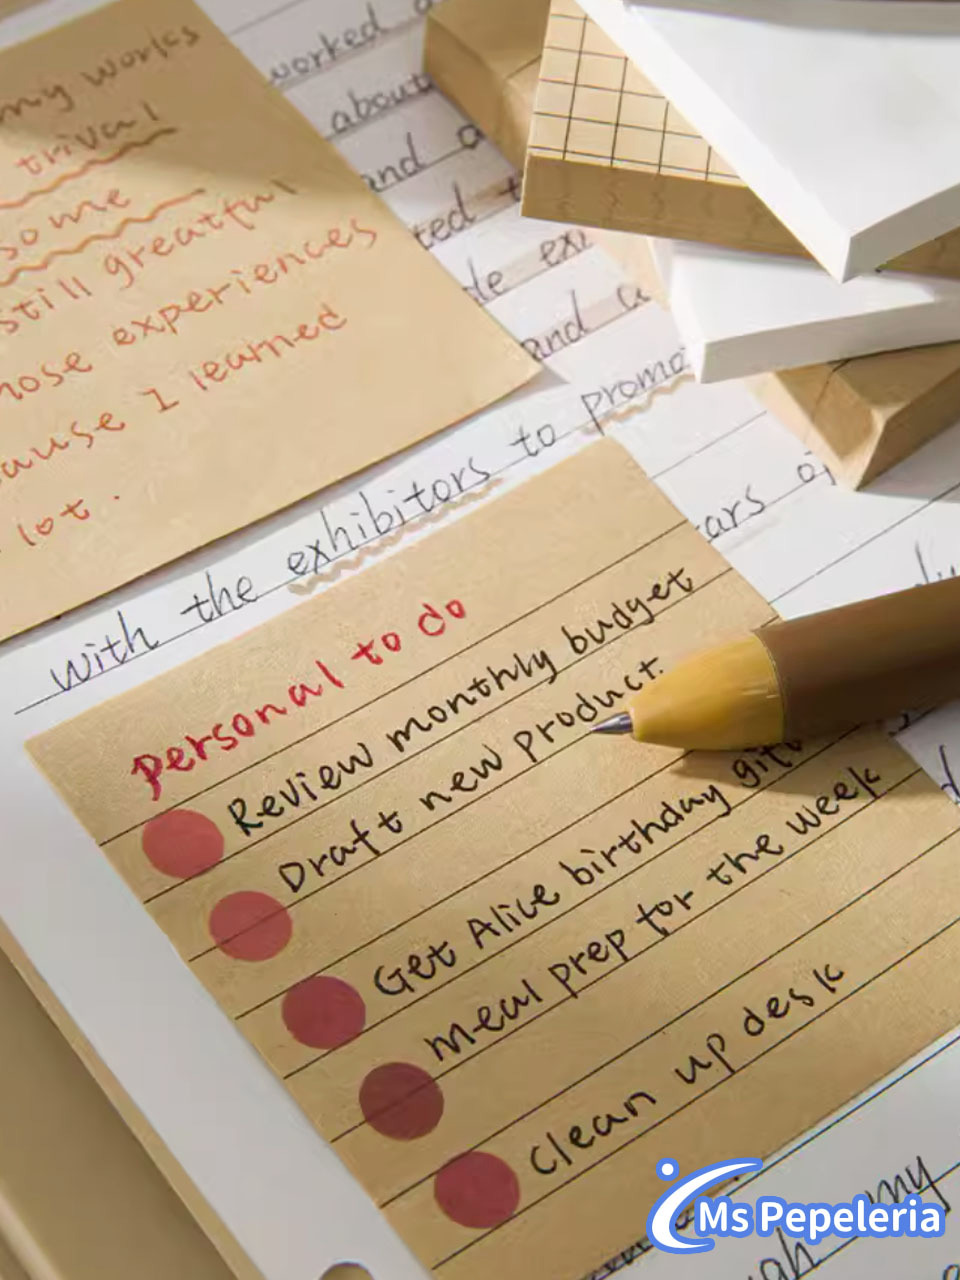 my works
trival
some
still greatful
experiences
I learned
lot.
worked
about
and
and
with the exhibitors to
Personal to do
Review monthly budget
Draft new product.
Get Alice birthday
meal prep for the week
Clean up desk
my
Ms Pepeleria